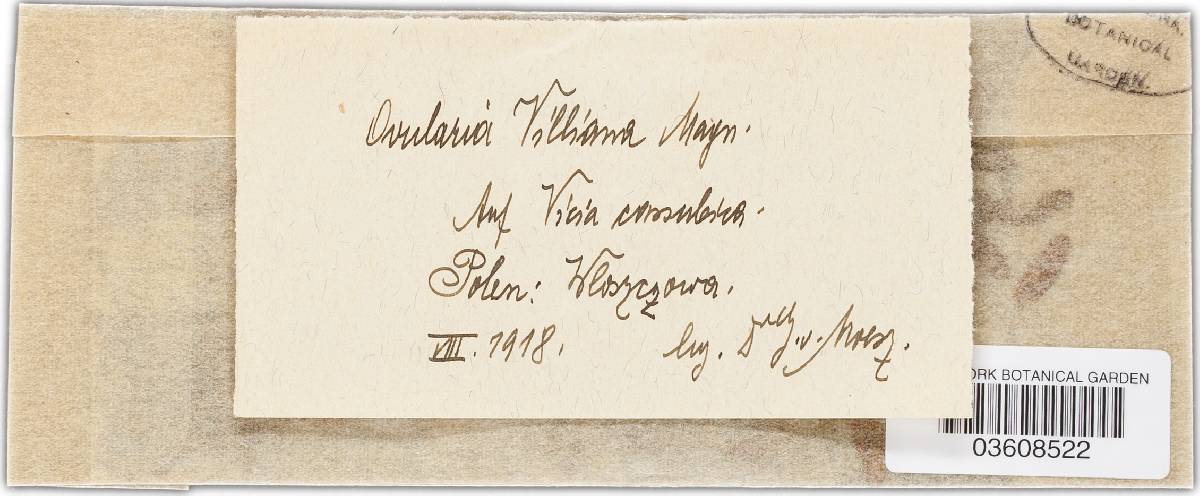 BOTANICAL
GARDEN.
Ovularia Villiana Magn.
Auf Vicia cassubica.
Polen: Włoszczowa.
VIII. 1918. leg. Dr. G. v. Moesz.
ORK BOTANICAL GARDEN
03608522